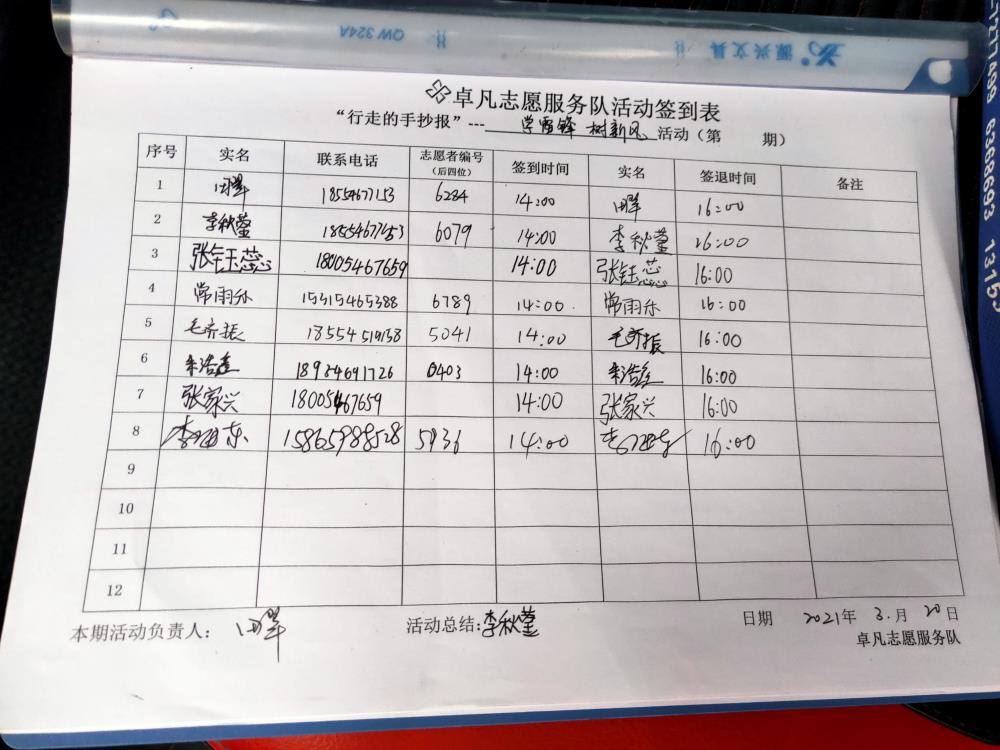 QW 324A
源兴文具
卓凡志愿服务队活动签到表
“行走的手抄报”---学雷锋 树新风 活动（第 期）
序号 实名 联系电话 志愿者编号（后四位） 签到时间 实名 签退时间 备注
1 6284 14:00 16:00
2 李秋莹 6079 14:00 李秋莹 16:00
3 张钰蕊 18005467659 14:00 张钰蕊 16:00
4 常雨乐 15315465388 6789 14:00 常雨乐 16:00
5 毛齐振 5041 14:00 毛齐振 16:00
6 18984691726 0403 14:00 16:00
7 张家兴 18005467659 14:00 张家兴 16:00
8 5936 14:00 16:00
9
10
11
12
本期活动负责人： 活动总结：李秋莹 日期 2021年 3.月 20日
卓凡志愿服务队